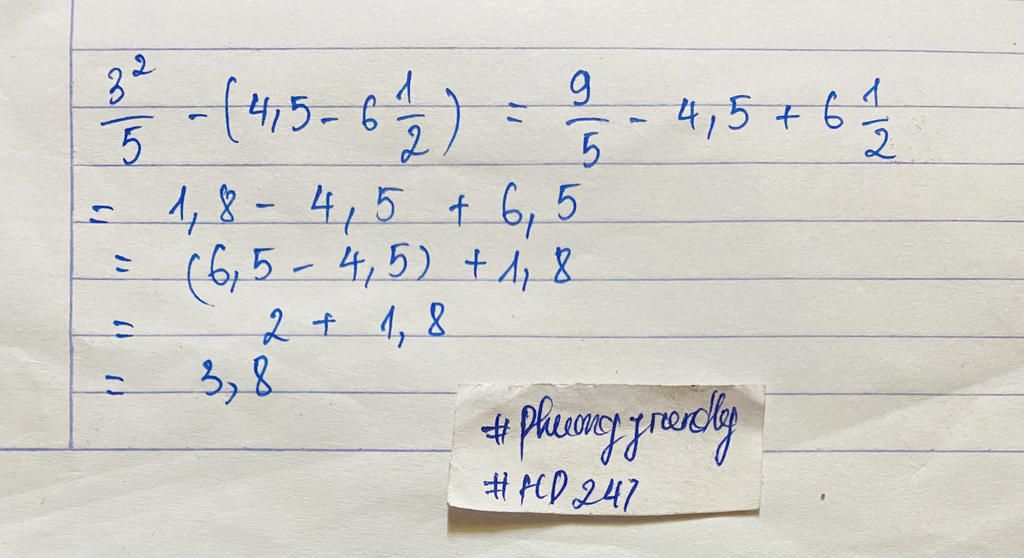 3²/5 - (4,5 - 6 1/2) = 9/5 - 4,5 + 6 1/2
= 1,8 - 4,5 + 6,5
= (6,5 - 4,5) + 1,8
= 2 + 1,8
= 3,8
#phuong
#HD247